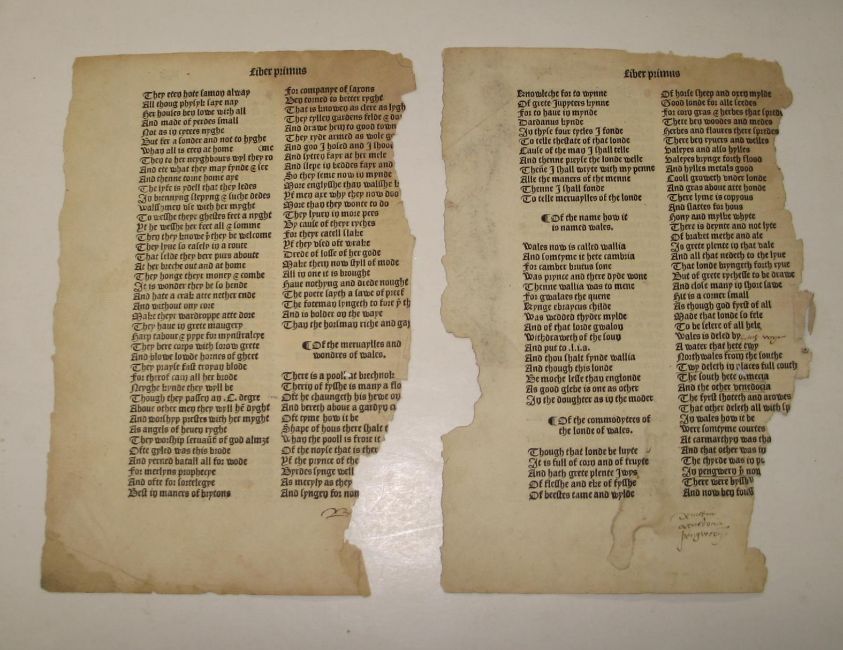 Liber primus
They eten hote samon alway
All thoug physyk saye nay
Her houses ben lowe with all
And made of yerdes small
Not as in cytees nyghe
But fer a sonder and not to hyghe
Whan all is eten at home
They to her neyghbours wyl they ro
me
And ete what they may fynde & see
And thenne come home aye
The lyfe is ydell that they ledes
In brennyng slepyng & suche dedes
Walsshmen vse with her myght
To wesshe theyr ghestes feet a nyght
Yf he wesshe her feet all & somme
Then they knowe þt they be welcome
They lyue so easely in a route
That selde they bere purs aboute
At her breche out and at home
They honge theyr money & combe
It is wonder they be so hende
And hate a crak atte nether ende
And without ony core
Make theyr wardroppe atte dore
They haue in grete maugery
Harp tabour & pype for mynstralcye
They bere corps with sorow grete
And blowe lowde hornes of ghete
They prayse fast troyan blode
For therof cam all her brode
Neyghe kynde they wyll be
Though they passen an .C. degre
Aboue other men they wyll hem dyght
And worshyp preestes with her myght
As angels of heuen ryght
They worship seruauntes of god almyt
Ofte gyled was this brode
And yerned batall all for wode
For merlyns prophecye
And ofte for sortelegye
Best in maners of brytons
For companye of saxons
Ben torned to better ryght
That is knowen as clere as lygh
They tyllen gardens felde & do
And drawe hem to good town
They ryde armed as wole g
And goo I hosed and I shoo
And sytten fayr at her mele
And slepe in beddes fayr and
So they seme now in mynde
More englysshe than walsshe k
Yf men axe why they now doo
More than they wonte to do
They lyuen in more pees
By cause of theyr ryches
For theyr catell slake
Yf they vsed oft wrake
Drede of losse of her gode
Make them now styll of mode
All in one it is broughe
Haue nothyng and drede nought
The poete sayth a sawe of preef
The foteman syngeth to fore þe th
And is bolder on the waye
Than the horsman riche and gay
¶ Of the meruaylles and
wondres of wales.
There is a pool at brechnok
Therin of fysshe is many a flo
Oft he chaungeth his hewe on
And bereth aboue a gardyn c
Oft tyme how it be
Shape of hous there shalt
Whan the pooll is frore it
Of the noyse that is ther
Yf the prynce of the
Byrdes synge well
As meryly as they
And syngen for non
Liber primus
Knowleche for to wynne
Of grete Jupyters kynne
For to haue in mynde
Dardanus kynde
In thyse four tytles I fonde
To telle thestate of that londe
Cause of the man I shall telle
And thenne preyse the londe welle
Thene I shall wryte with my penne
Alle the maners of the menne
Thenne I shall fonde
To telle meruaylles of the londe
¶ Of the name how it
is named wales.
Wales now is called wallia
And somtyme it hete cambria
For camber brutus sone
Was prynce and there dyde wone
Thenne wallia was to mene
For gwalaes the quene
Kynge ebrayeus childe
Was wedded thyder mylde
And of that lorde gwalon
Withdraweth of the soun
And put to .l.i.a.
And thou shalt fynde wallia
And though this londe
Be moche lesse than englonde
As good glebe is one as other
In the doughter as in the moder
¶ Of the commodytees of
the londe of wales.
Though that londe be luyte
It is full of corn and of fruyte
And hath grete plente Iwys
Of flesshe and eke of fysshe
Of beestes tame and wylde
Of horse sheep and oxen mylde
Good londe for alle seedes
For corn gras & herbes that spred
Ther ben woodes and medes
Herbes and floures there spredes
There ben ryuers and welles
Valeyes and also hylles
Valeyes brynge forth flood
And hylles metals good
Cooll groweth vnder londe
And gras aboue atte honde
There lyme is copyous
And slattes for hous
Hony and mylke whyte
There is deynte and not lyte
Of braket methe and ale
Is grete plente in that vale
And all that nedeth to the lyue
That londe bryngeth forth ryue
But of grete rychesse to be drawe
And close many in short sawe
Hit is a corner small
As though god fyrst of all
Made that londe so fele
To be selere of all hele
Wales is deled by
A water that hete twy
Northwales from the southe
Twy deleth in places full couth
The south hete demecia
And the other venedocia
The fyrst shoteth and arowes
That other deleth all with sp
In wales how it be
Were somtyme courtes
At carmarthyn was tha
And that other was in
The thyrde was in po
In pengwern þt now
There were bysshop
And now ben four
venedocia
pengwern